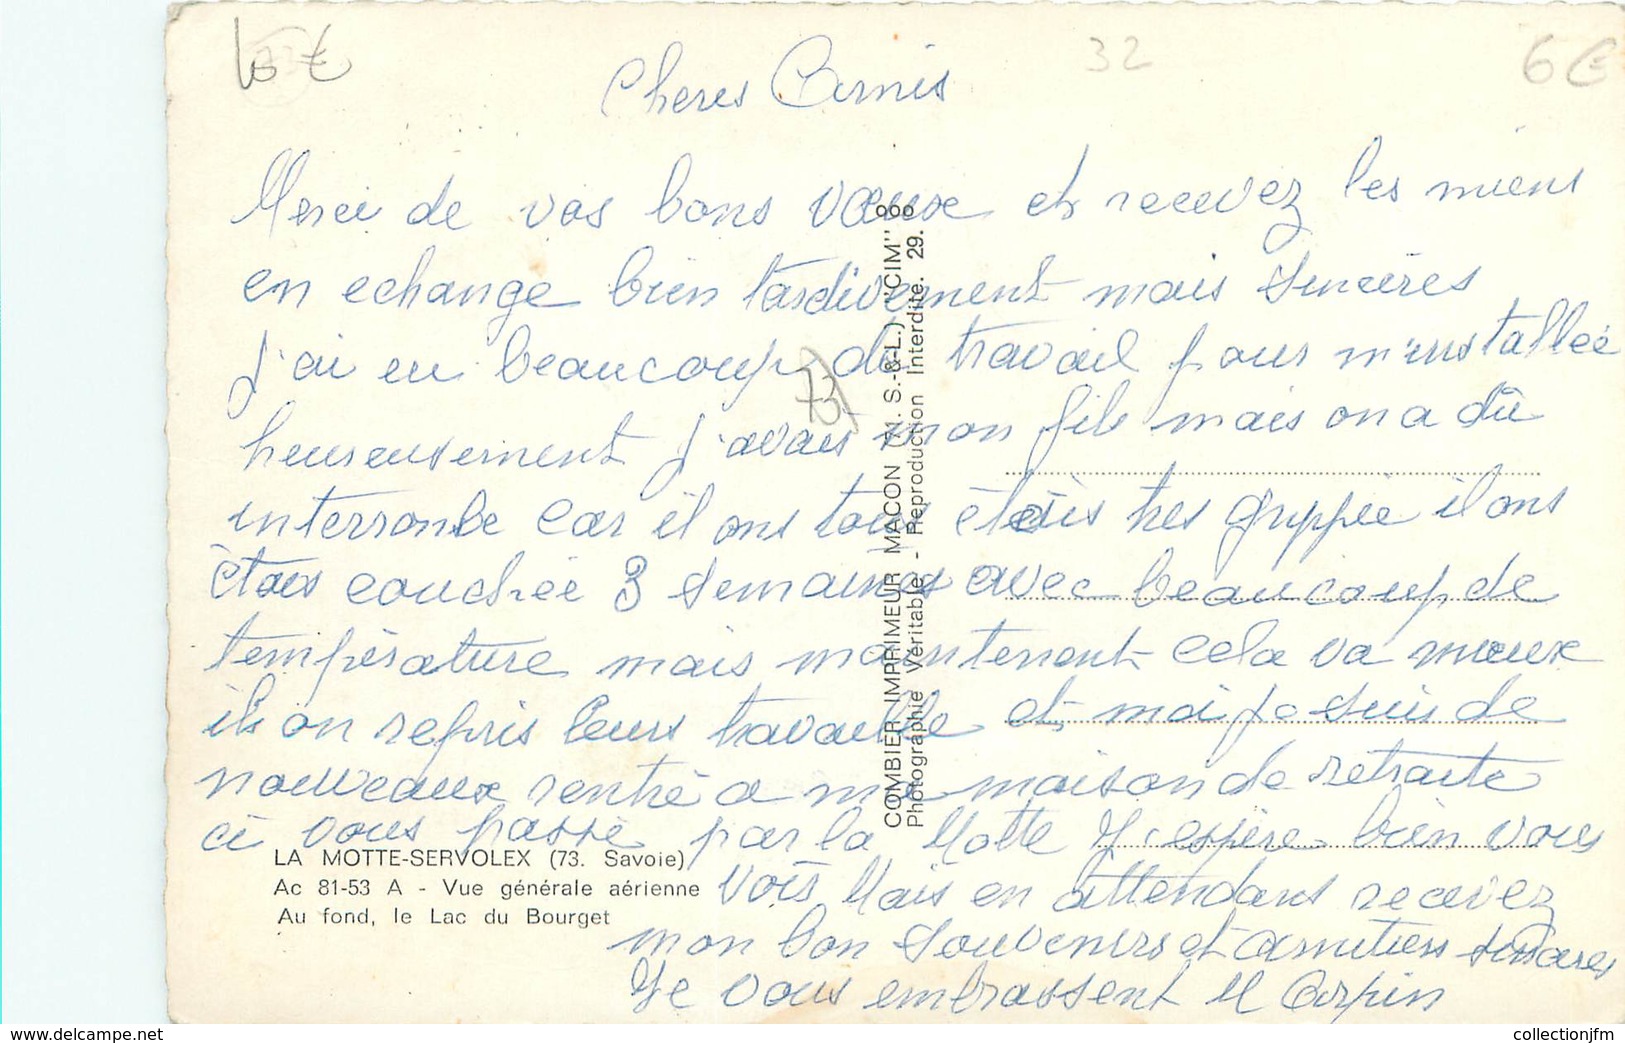 6 €
32
6 €
Cheres Amis
Merci de vos bons vœux et recevez les miens
en echange bien tardivement mais sincères
J'ai eu beaucoup de travail pour m'installée
heureusement j'avais mon fils mais on a dû
interronbe car il ons tous étais tres grippée il ons
étais couchée 3 semaines avec beaucoup de
température mais maintenent cela va mieux
ils on repris leurs travaille et moi je suis de
nouveaux rentré a ma maison de retraite
ci vous passé par la Motte J'espère bien vous
vois Mais en attendans recevez
mon bon souvenirs et amitiers sinsares
Je vous embrassent M Carpin
73
LA MOTTE-SERVOLEX (73. Savoie)
Ac 81-53 A - Vue générale aérienne
Au fond, le Lac du Bourget
COMBIER IMPRIMEUR MACON (N. S.-&-L.) "CIM" ooo
Photographie Véritable - Reproduction Interdite. 29.
collectionjfm